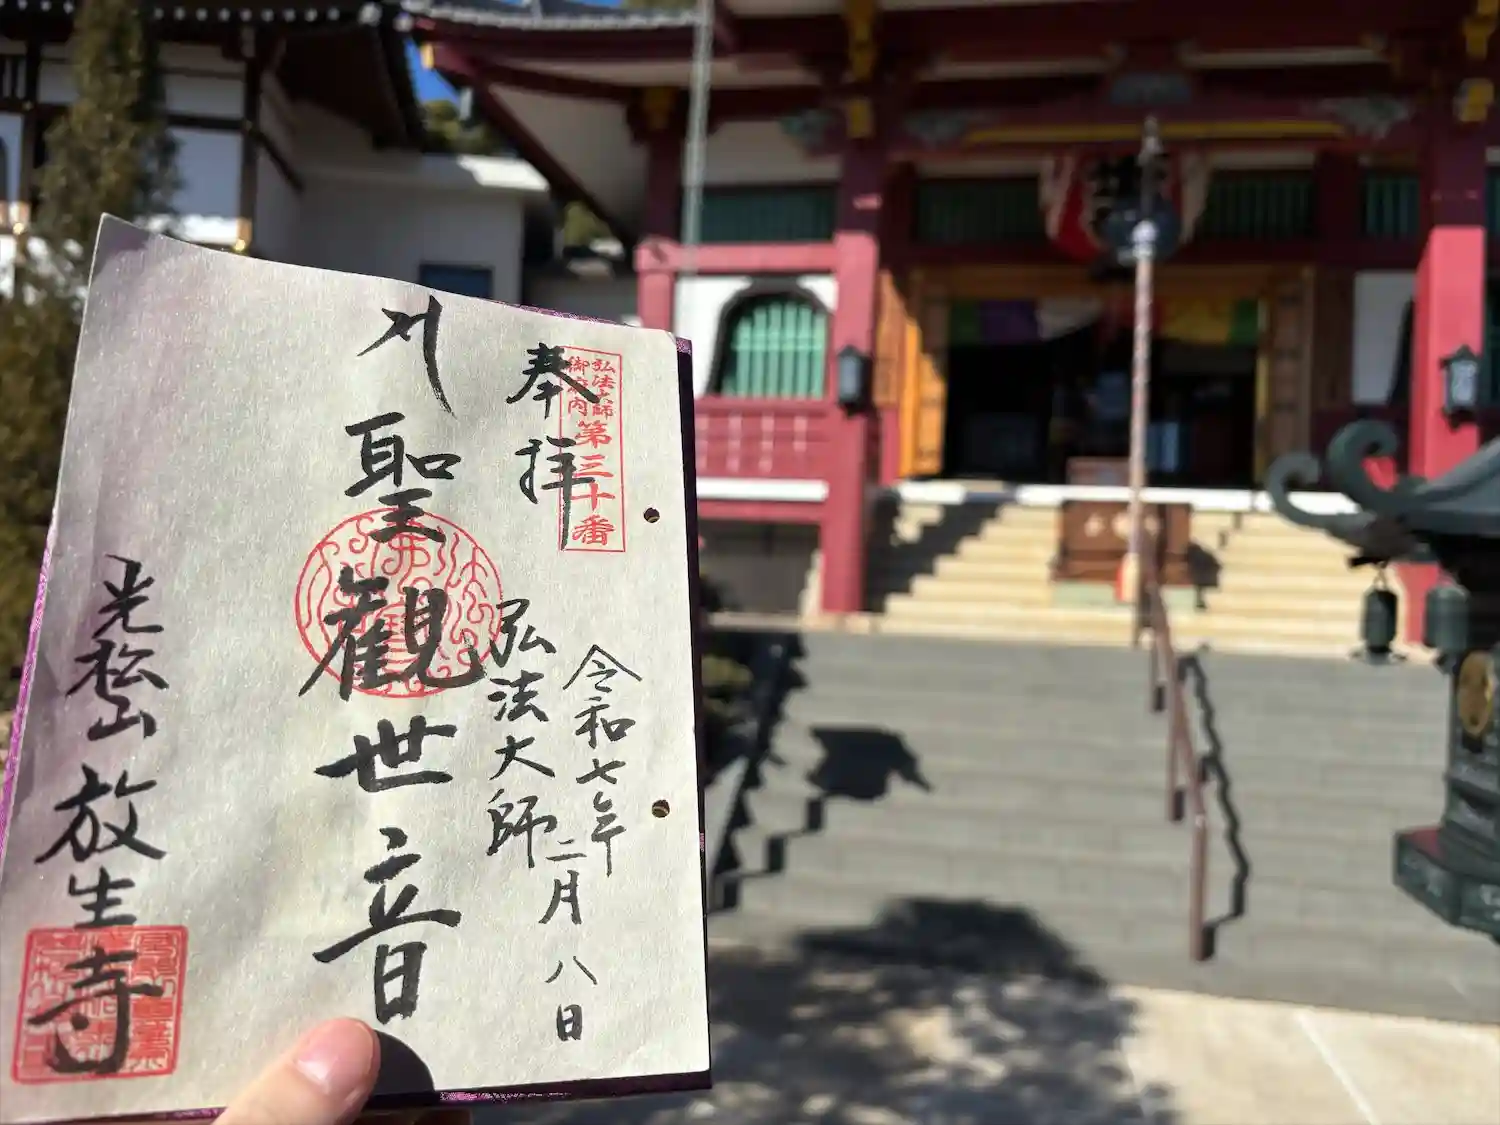 弘法大師
御府内
第三十番
奉拝
令和七年二月八日
弘法大師
聖観世音
光松山放生寺